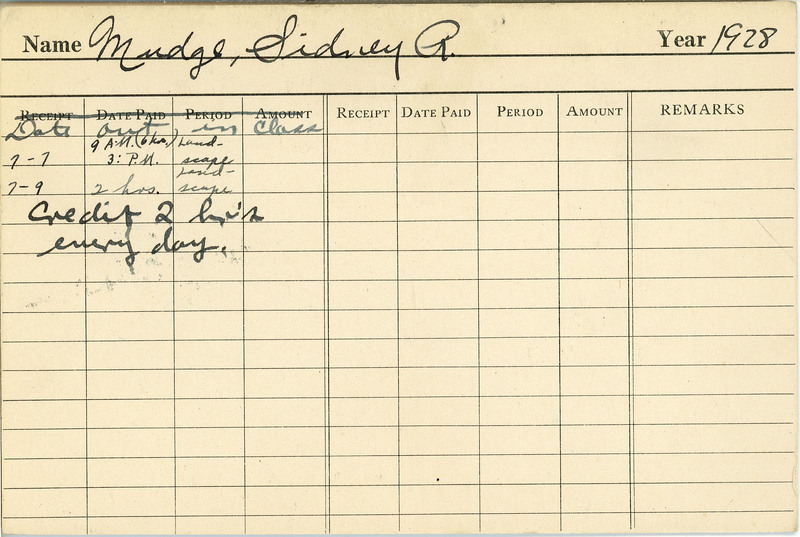 Name Mudge, Sidney R. Year 1928
RECEIPT DATE PAID PERIOD AMOUNT RECEIPT DATE PAID PERIOD AMOUNT REMARKS
Date out, in class
9 A.M. (6 hrs.) Land-
7-7 3: P.M. scape
Land-
7-9 2 hrs. scape
Credit 2 hr's
every day.